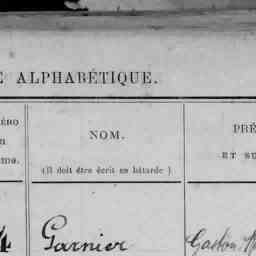 E ALPHABÉTIQUE.
NOM.
(Il doit être écrit en bâtarde)
PRÉ
ET SU
4
Garnier
Gaston